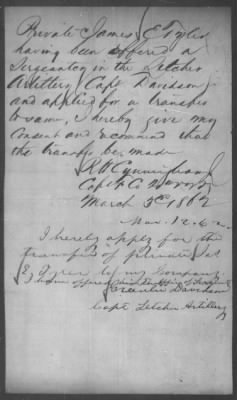 Private James E Tyler
having been offered a
Sergeantcy in the Letcher
Artillery Capt Davidson
and applied for a transfer
to same, I hereby give my
consent and recommend that
the transfer be made
R H Cunningham Jr
Capt
March 3d 1862
Mar. 12. 62
I hereby apply for the
transfer of private Jas
E. Tyler to my Company.
to be offered
Greenlee Davidson
Capt Letcher Artillery